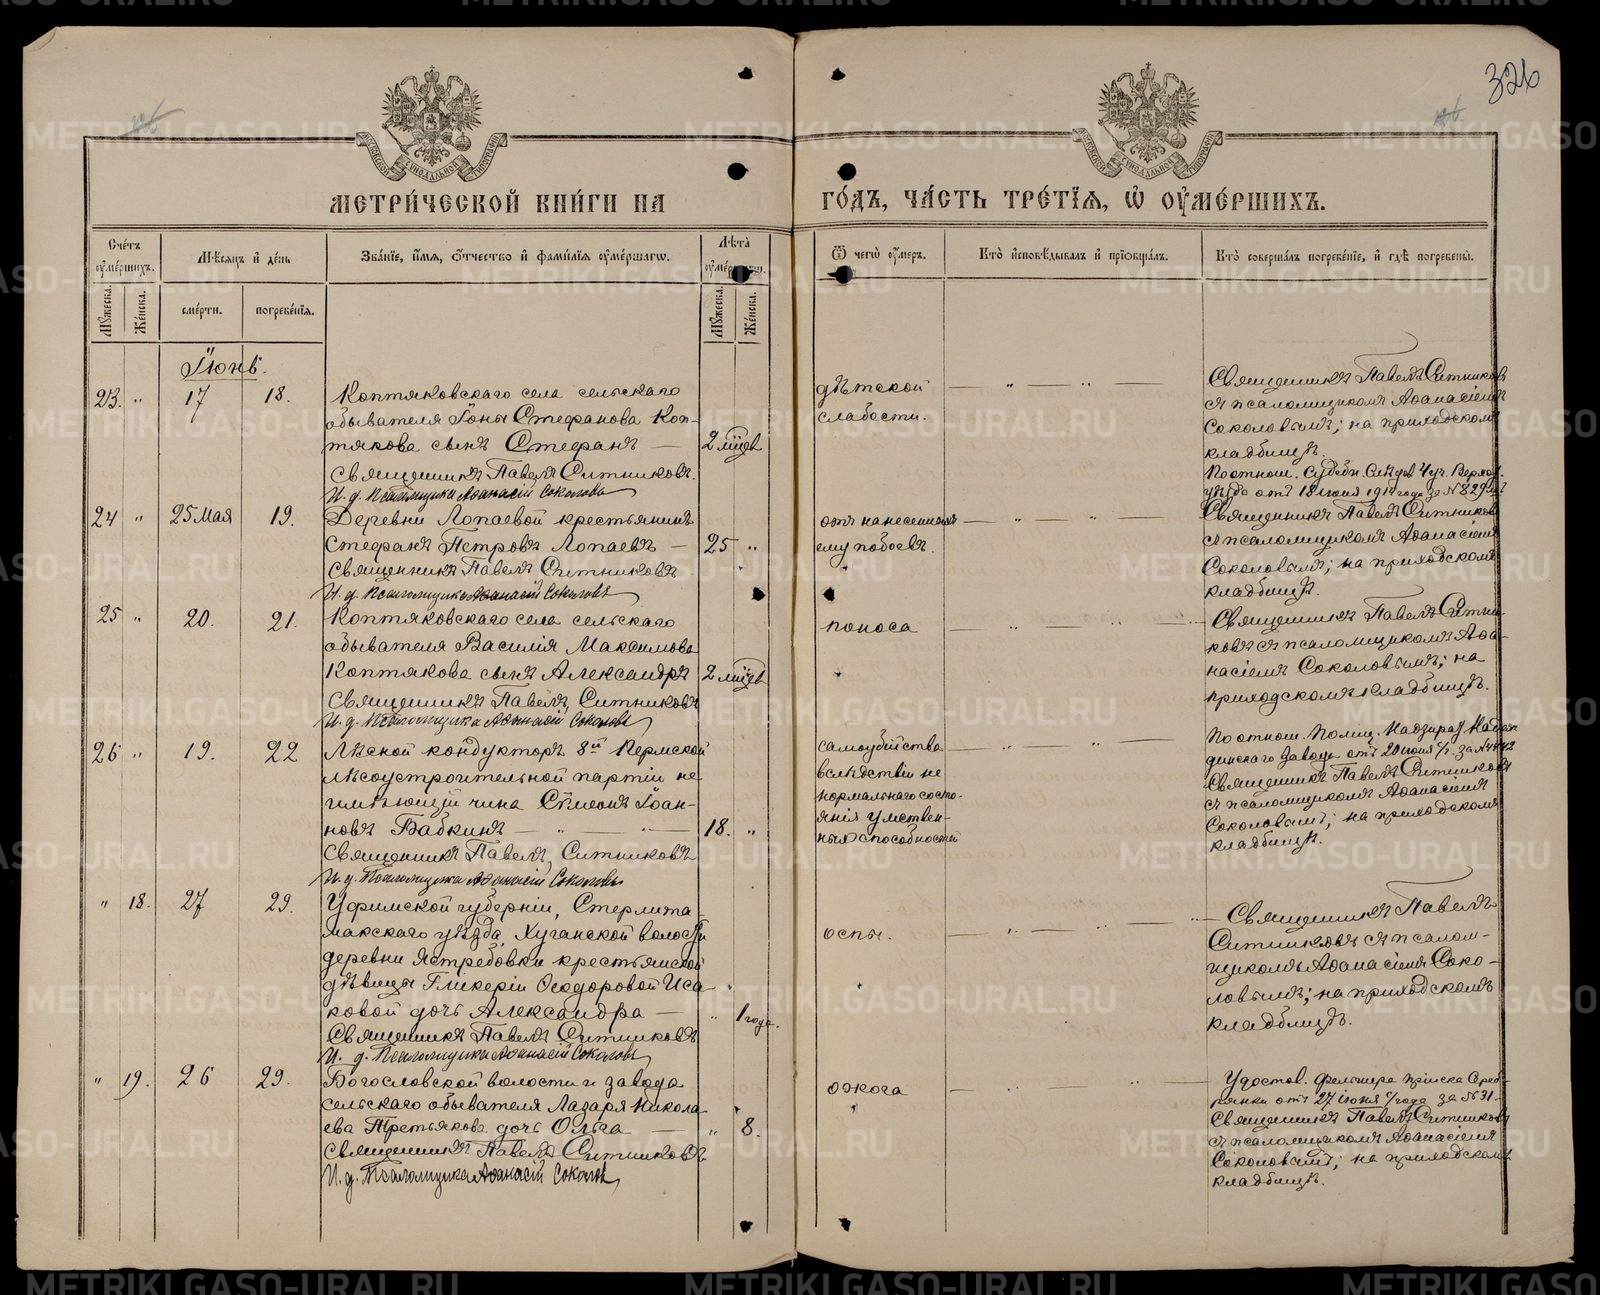 326
МОСКОВСКОЙ СИНОДАЛЬНОЙ ТИПОГРАФІИ
МОСКОВСКОЙ СИНОДАЛЬНОЙ ТИПОГРАФІИ
МЕТРИ́ЧЕСКОЙ КНИ́ГИ НА
ГО́ДЪ, ЧА́СТЬ ТРЕ́ТІѦ, Ѡ҆ ОУ҆МЕ́РШИХЪ.
Сче́тъ оу҆ме́ршихъ.
Мꙋ́жеска.
Же́нска.
Мѣ́сяцъ и҆ де́нь
сме́рти.
погребе́нїя.
Зва́нїе, и҆́мя, ѻ҆́тчество и҆ фами́лїя оу҆ме́ршагѡ.
Лѣ́та оу҆ме́ршагѡ.
Мꙋ́жеска.
Же́нска.
Ѿ чегѡ̀ оу҆́меръ.
Кто̀ и҆сповѣ́дывалъ и҆ прїѡбща́лъ.
Кто̀ соверша́лъ погребе́нїе, и҆ гдѣ̀ погребены̀.
Іюнь.
23. " 17 18. Коптяковскаго села сельскаго
обывателя Іоны Стефанова Коп-
тякова сынъ Стефанъ — 2 мѣсяц.
Священникъ Павелъ Ситниковъ.
И. д. Псаломщика Аѳанасій Соколовъ
дѣтской
слабости.
Священникъ Павелъ Ситниковъ
съ псаломщикомъ Аѳанасіемъ
Соколовымъ; на приходскомъ
кладбищѣ.
24 " 25 Мая 19. Деревни Лопаевой крестьянинъ
Стефанъ Петровъ Лопаевъ — 25 "
Священникъ Павелъ Ситниковъ
И. д. Псаломщика Аѳанасій Соколовъ
отъ нанесенныхъ
ему побоевъ.
По отнош. Судебн. Слѣдов. 4 уч. Верхот.
уѣзда отъ 18 іюня 1914 года за № 829
Священникъ Павелъ Ситниковъ
съ псаломщикомъ Аѳанасіемъ
Соколовымъ; на приходскомъ
кладбищѣ.
25 " 20. 21. Коптяковскаго села сельскаго
обывателя Василія Максимова
Коптякова сынъ Александръ 2 мѣсяц.
Священникъ Павелъ Ситниковъ
И. д. Псаломщика Аѳанасій Соколовъ
поноса
Священникъ Павелъ Ситни-
ковъ съ псаломщикомъ Аѳа-
насіемъ Соколовымъ; на
приходскомъ кладбищѣ.
26 " 19. 22 Лѣсной кондукторъ 8й Пермской
лѣсоустроительной партіи не
имѣющій чина Сѵмеонъ Іоан-
новъ Бабкинъ — " — 18. "
Священникъ Павелъ Ситниковъ
И. д. Псаломщика Аѳанасій Соколовъ
самоубійства
вслѣдствіи не
нормальнаго состо-
янія умствен-
ныхъ способностей
По отнош. Полиц. Надзират. Надеж-
динскаго завода отъ 20 іюня с/г. за №
Священникъ Павелъ Ситниковъ
съ псаломщикомъ Аѳанасіемъ
Соколовымъ; на приходскомъ
кладбищѣ.
" 18. 27 29. Уфимской губерніи, Стерлита-
макскаго уѣзда, Хуганской волости
деревни Ястребовки крестьянской
дѣвицы Гликеріи Ѳеодоровой Иса-
ковой дочь Александра — " 1 года.
Священникъ Павелъ Ситниковъ
И. д. Псаломщика Аѳанасій Соколовъ
оспы.
Священникъ Павелъ
Ситниковъ съ псалом-
щикомъ Аѳанасіемъ Соко-
ловымъ; на приходскомъ
кладбищѣ.
" 19. 26 29. Богословской волости и завода
сельскаго обывателя Лазаря Никола-
ева Третьякова дочь Ольга — " 8.
Священникъ Павелъ Ситниковъ
И. д. Псаломщика Аѳанасій Соколовъ
ожога
Удостов. Фельшера пріиска Сереб-
рянки отъ 27 іюня с/года за № 31.
Священникъ Павелъ Ситниковъ
съ псаломщикомъ Аѳанасіемъ
Соколовымъ; на приходскомъ
кладбищѣ.
METRIKI.GASO-URAL.RU